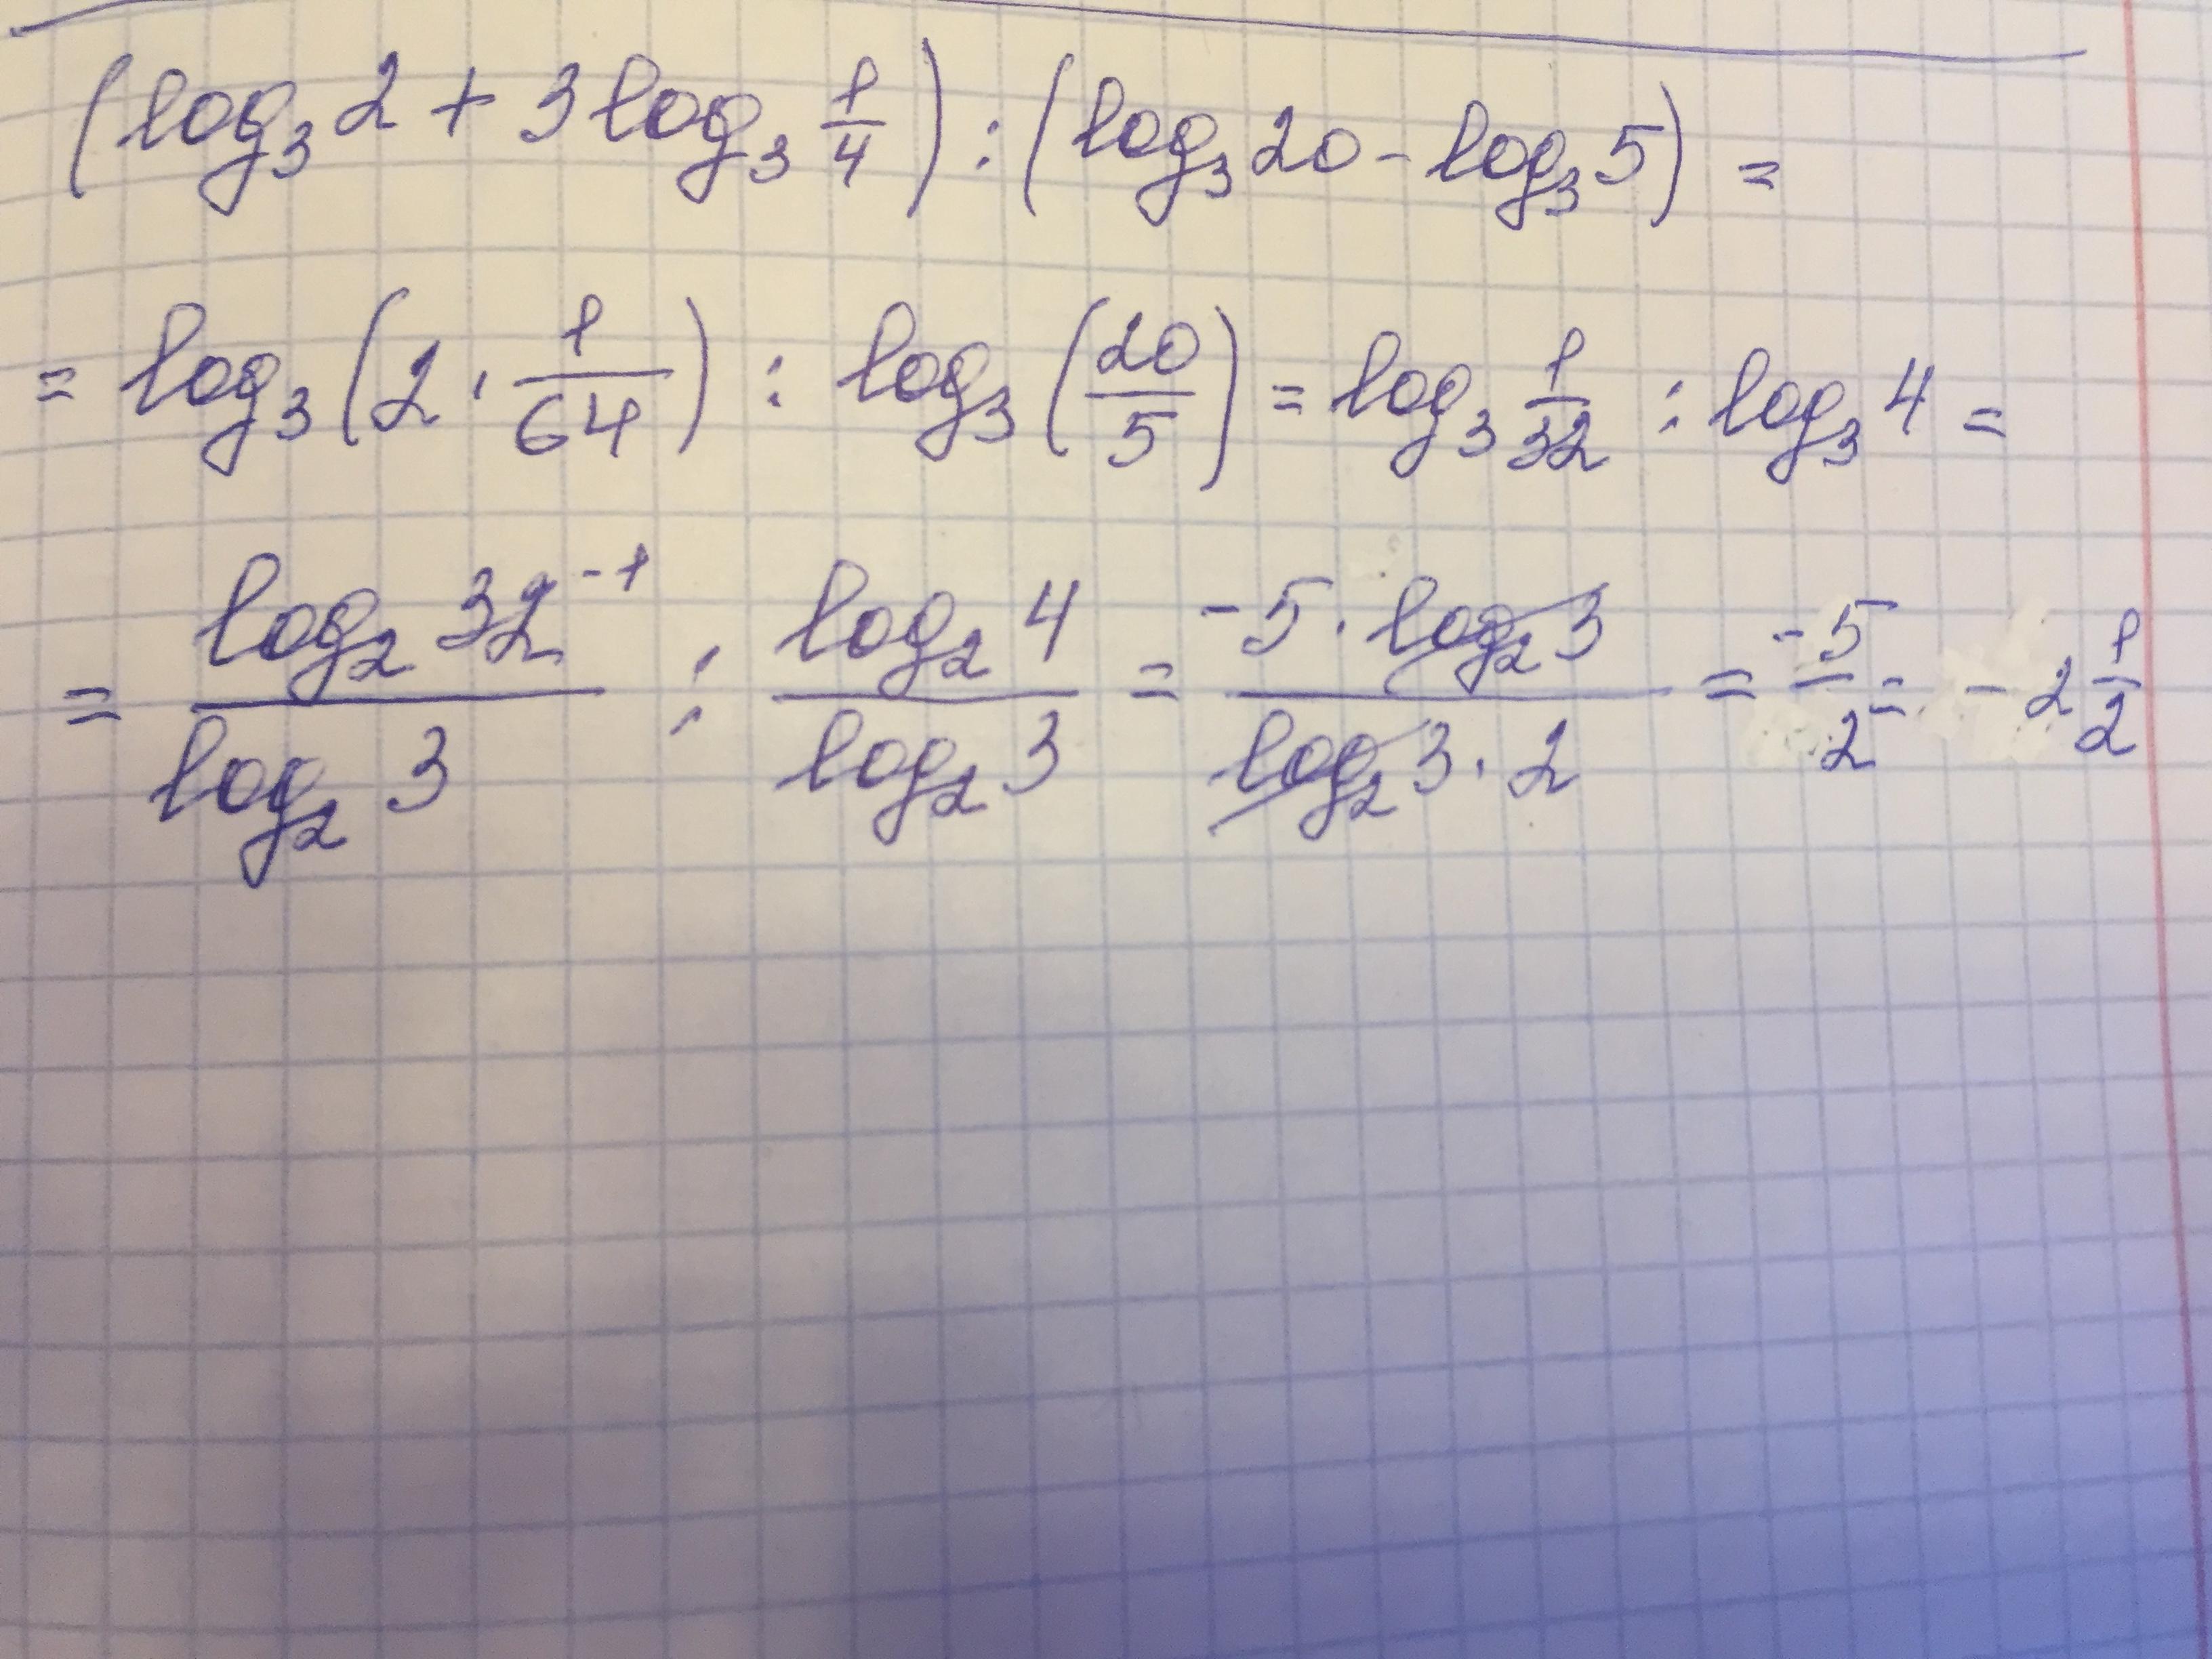 (log₃2 + 3log₃ 1/4) : (log₃20 - log₃5) =
= log₃(2 · 1/64) : log₃(20/5) = log₃ 1/32 : log₃4 =
= log₂32⁻¹/log₂3 : log₂4/log₂3 = -5·log₂3/log₂3·2 = -5/2 = -2 1/2